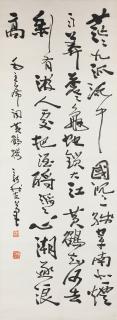 茫茫九派流中國沉沉一線穿南北煙
雨莽蒼蒼龜蛇鎖大江黃鶴知何去
剩有游人處把酒酹滔滔心潮逐浪
高
毛主席詞黃鶴樓